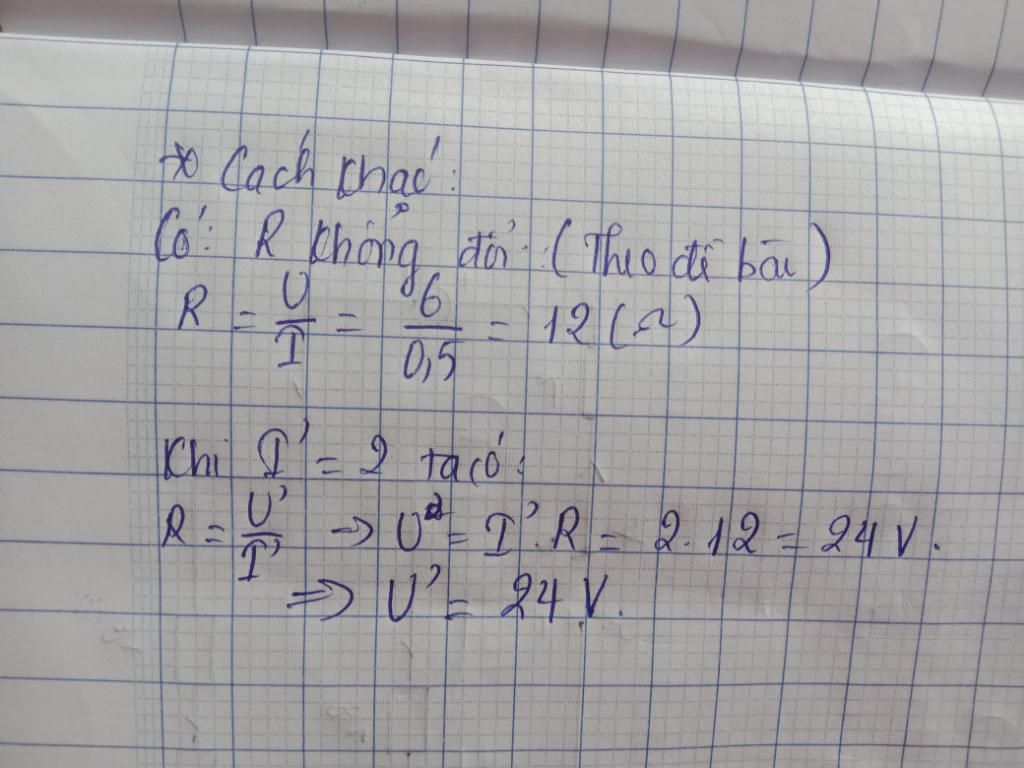 * Cách khác:
Có: R không đổi (Theo đề bài)
R = U/I = 6/0,5 = 12 (Ω)
Khi I' = 2 ta có:
R = U'/I' → U' = I'.R = 2.12 = 24 V.
⇒ U' = 24 V.